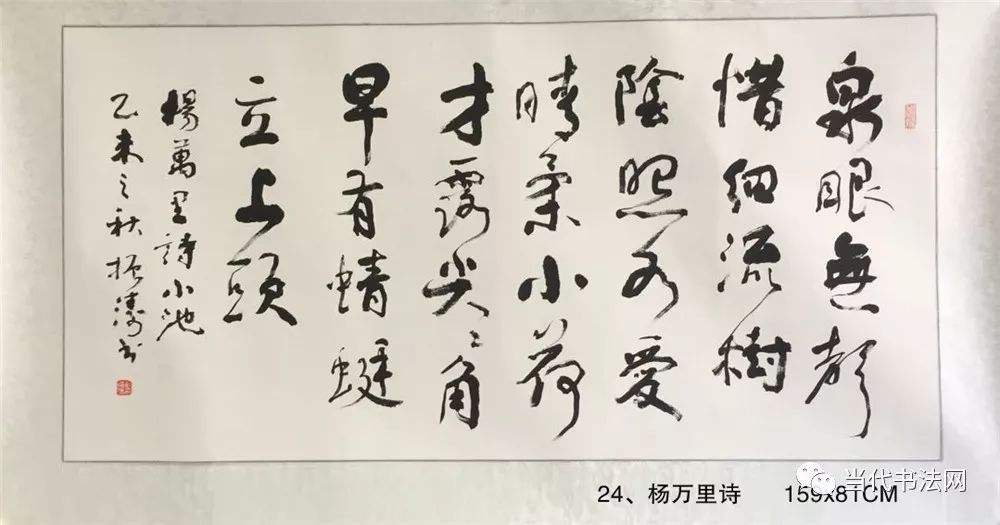 泉眼無聲
惜細流樹
陰照水愛
晴柔小荷
才露尖々角
早有蜻蜓
立上頭
楊萬里詩小池
乙未之秋振濤书
24、杨万里诗 159x81CM
当代书法网